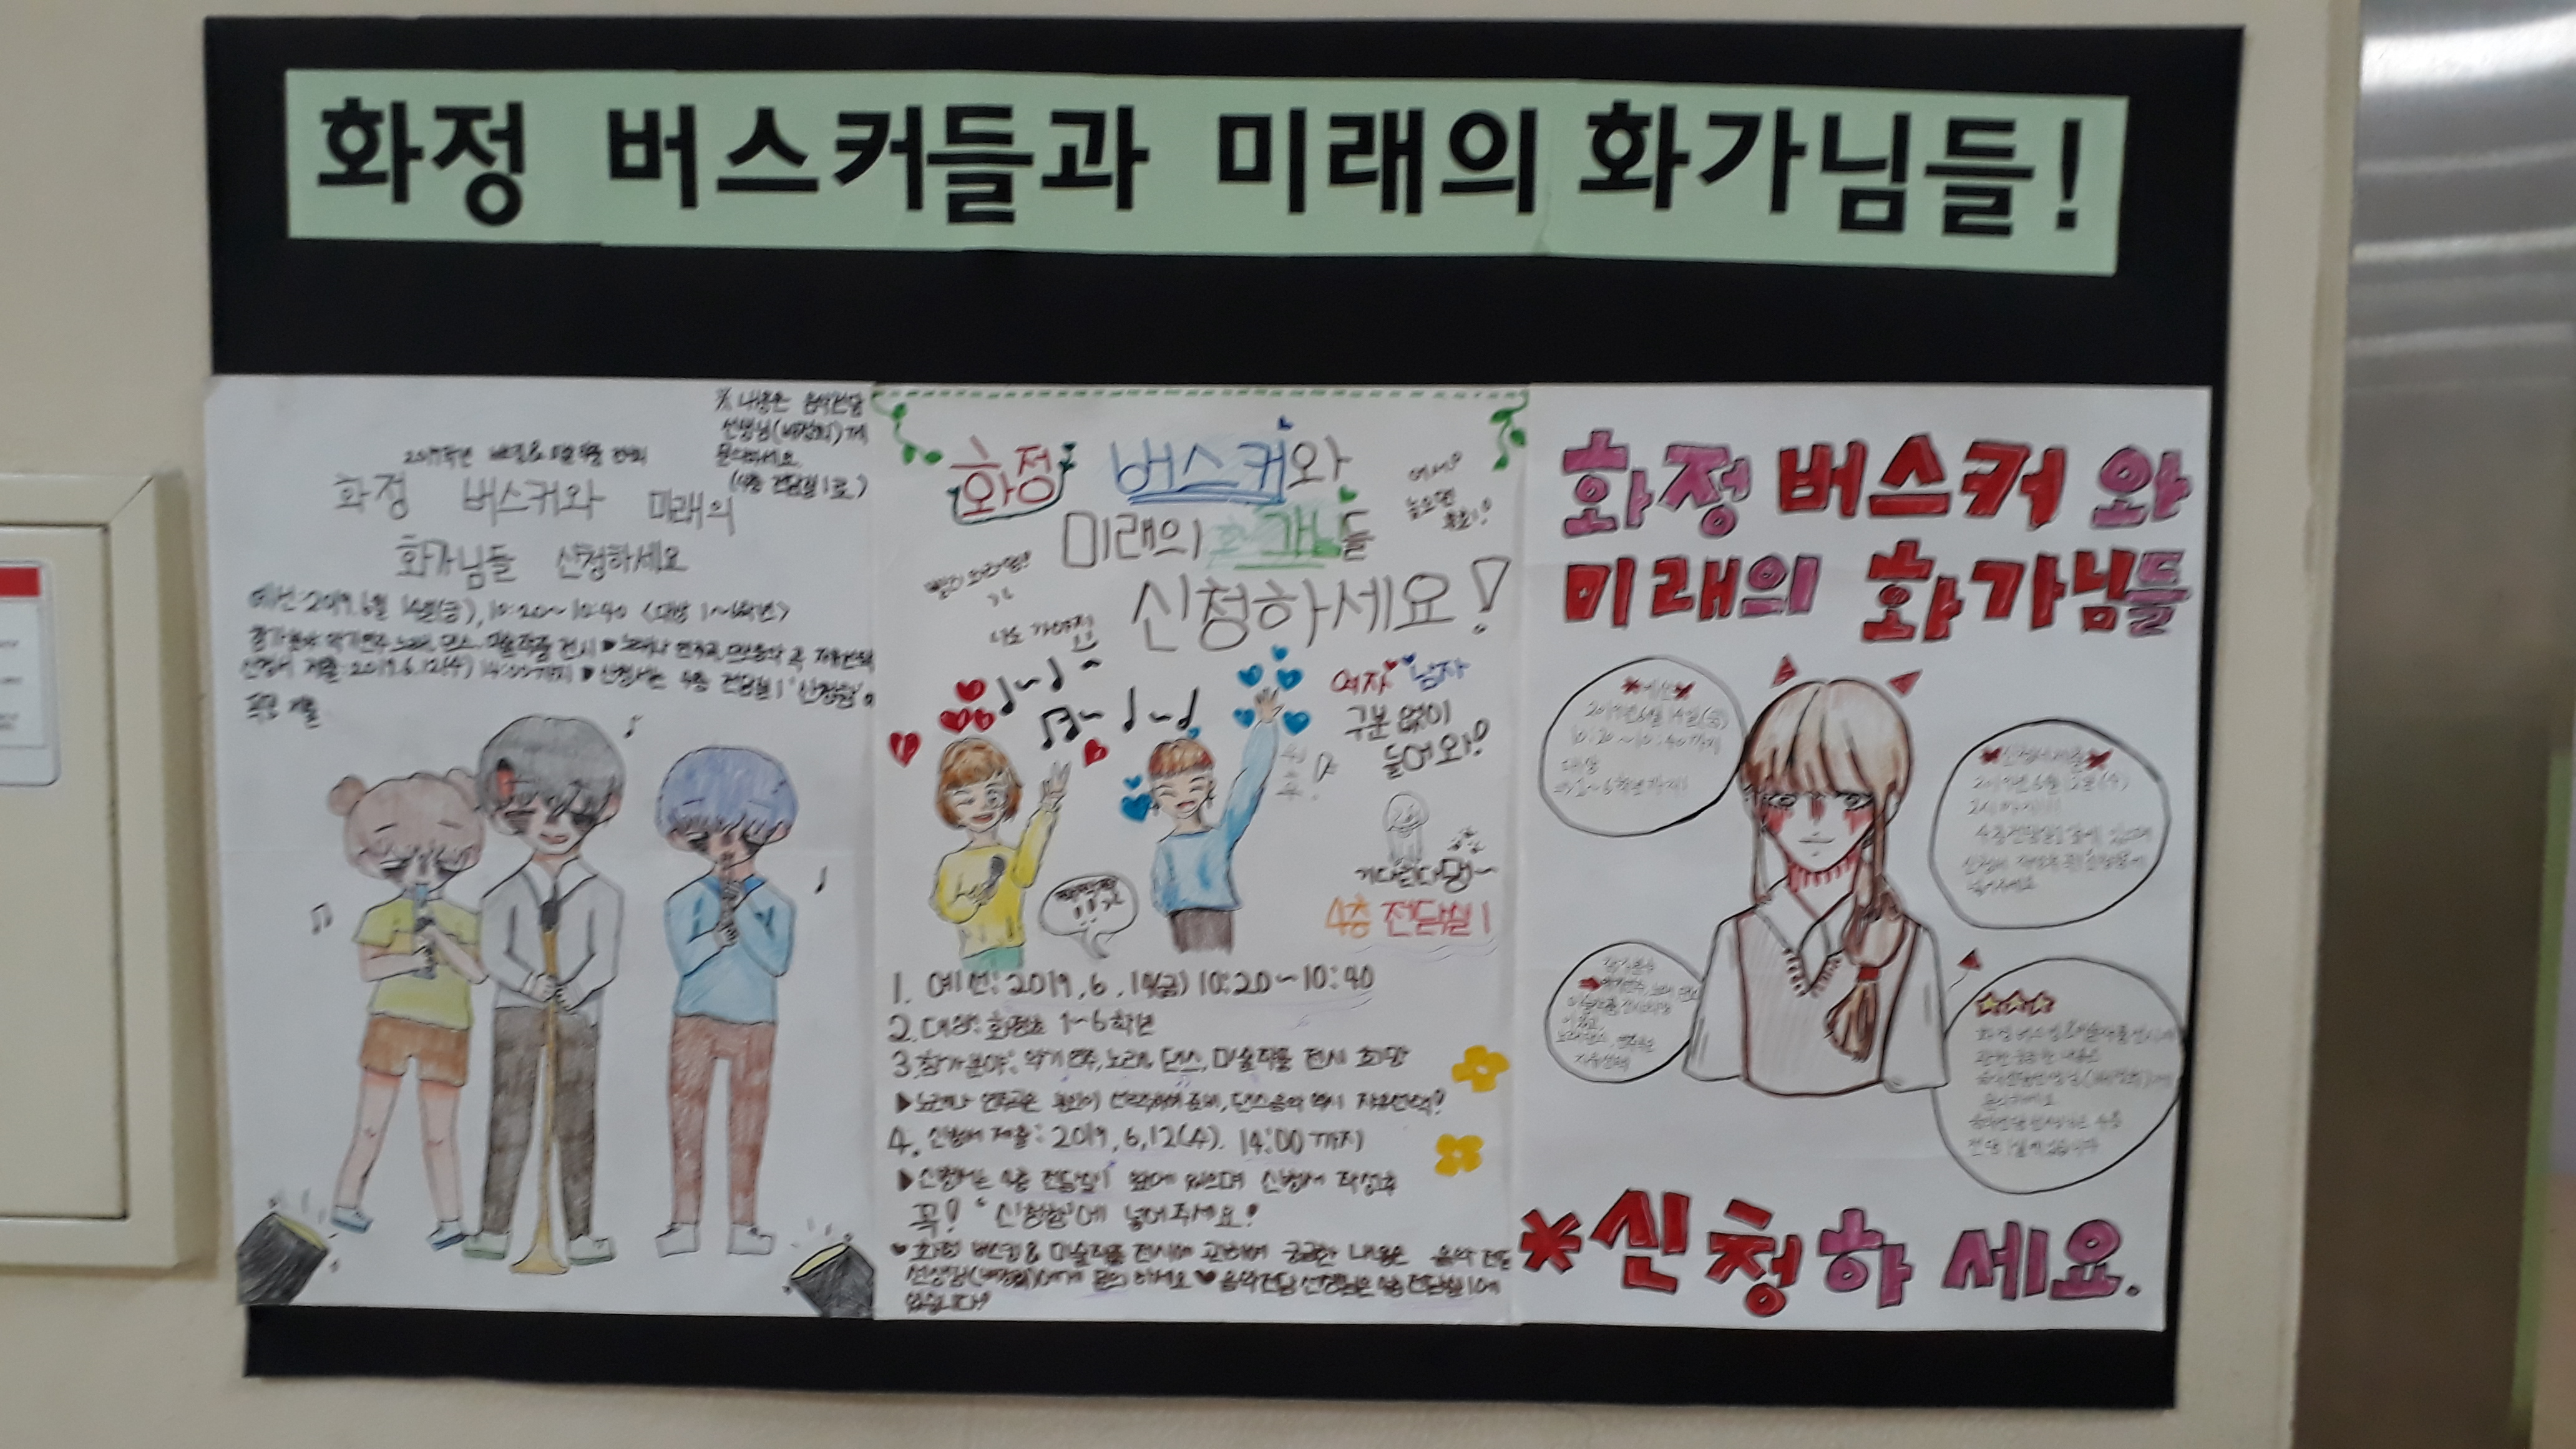 화정 버스커들과 미래의 화가님들!
※ 내용은 음악전담
선생님()께
문의하세요
(4층 전담실1로)
화정 버스커와 미래의
화가님들 신청하세요
예선:2019.6월 14일(금), 10:20~10:40 <대상 1~6학년>
참가분야 악기연주, 노래, 댄스, 미술작품 전시 ▶ 노래나 연주곡, 댄스음악 곡 자유선택
신청서 제출:2019.6.12(수) 14:00까지 ▶ 신청서는 4층 전담실1 '신청함'에
꼭 제출
화정 버스커와
미래의 화가님들
신청하세요!
여자 남자
구분 없이
들어와!
기다린다
4층 전담실1
1. 예선: 2019. 6. 14(금) 10:20~10:40
2. 대상: 화정초 1~6학년
3. 참가분야: 악기연주, 노래, 댄스, 미술작품 전시 희망
▶노래나 연주곡은 본인이 선택하여 준비, 댄스음악 역시 자유선택!
4. 신청서 제출: 2019. 6.12(수). 14:00까지
▶신청서는 4층 전담실1 앞에 있으며 신청서 작성후
꼭! '신청함'에 넣어주세요!
♥ 화정 버스킹 & 미술작품 전시에 관하여 궁금한 내용은 음악 전담
선생님()에게 문의 하세요 ♥ 음악전담 선생님은 4층 전담실1에
있습니다!
화정 버스커 와
미래의 화가님들
*예선*
2019년 6월 14일(금)
10:20~10:40까지
대상
⇒1~6학년까지!
*신청서제출*
2019년 6월 12일(수)
2시까지!!!
4층전담실1 앞에 있으며
넣어주세요
참가분야
자유선택
☆☆☆
화정 버스킹&미술작품전시에
관한 궁금한 내용은
음악전담선생님()께
문의하세요
음악전담선생님은 4층
전담1실에 있습니다
*신청하세요.